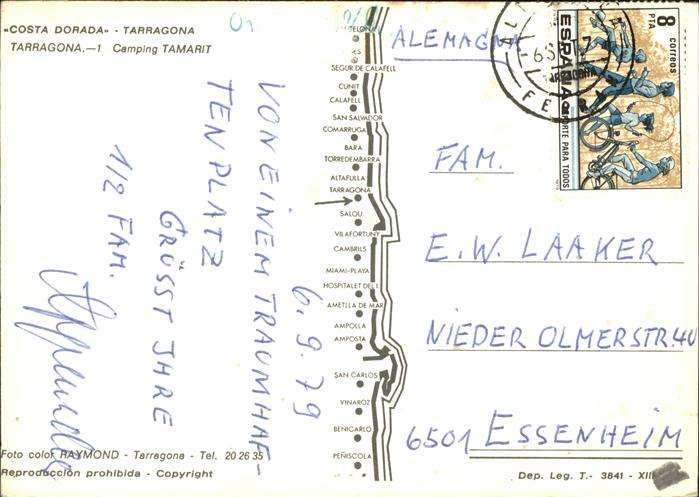 «COSTA DORADA» - TARRAGONA
TARRAGONA.—1 Camping TAMARIT
6.9.79
VON EINEM TRAUMHAF-
TEN PLATZ
GRÜSST IHRE
1/2 FAM.
SEGUR DE CALAFELL
CUNIT
CALAFELL
SAN SALVADOR
COMARRUGA
BARA
TORREDEMBARRA
ALTAFULLA
TARRAGONA
SALOU
VILAFORTUNY
CAMBRILS
MIAMI-PLAYA
HOSPITALET DEL I.
AMETLLA DE MAR
AMPOLLA
AMPOSTA
SAN CARLOS
VINAROZ
BENICARLO
PEÑISCOLA
ALEMAGNA
8 PTA
CORREOS
ESPAÑA
DEPORTE PARA TODOS
FAM.
E.W. LAAKER
NIEDER OLMERSTR 40
6501 ESSENHEIM
Foto color RAYMOND - Tarragona - Tel. 20 26 35
Reproducción prohibida - Copyright
Dep. Leg. T.- 3841 -